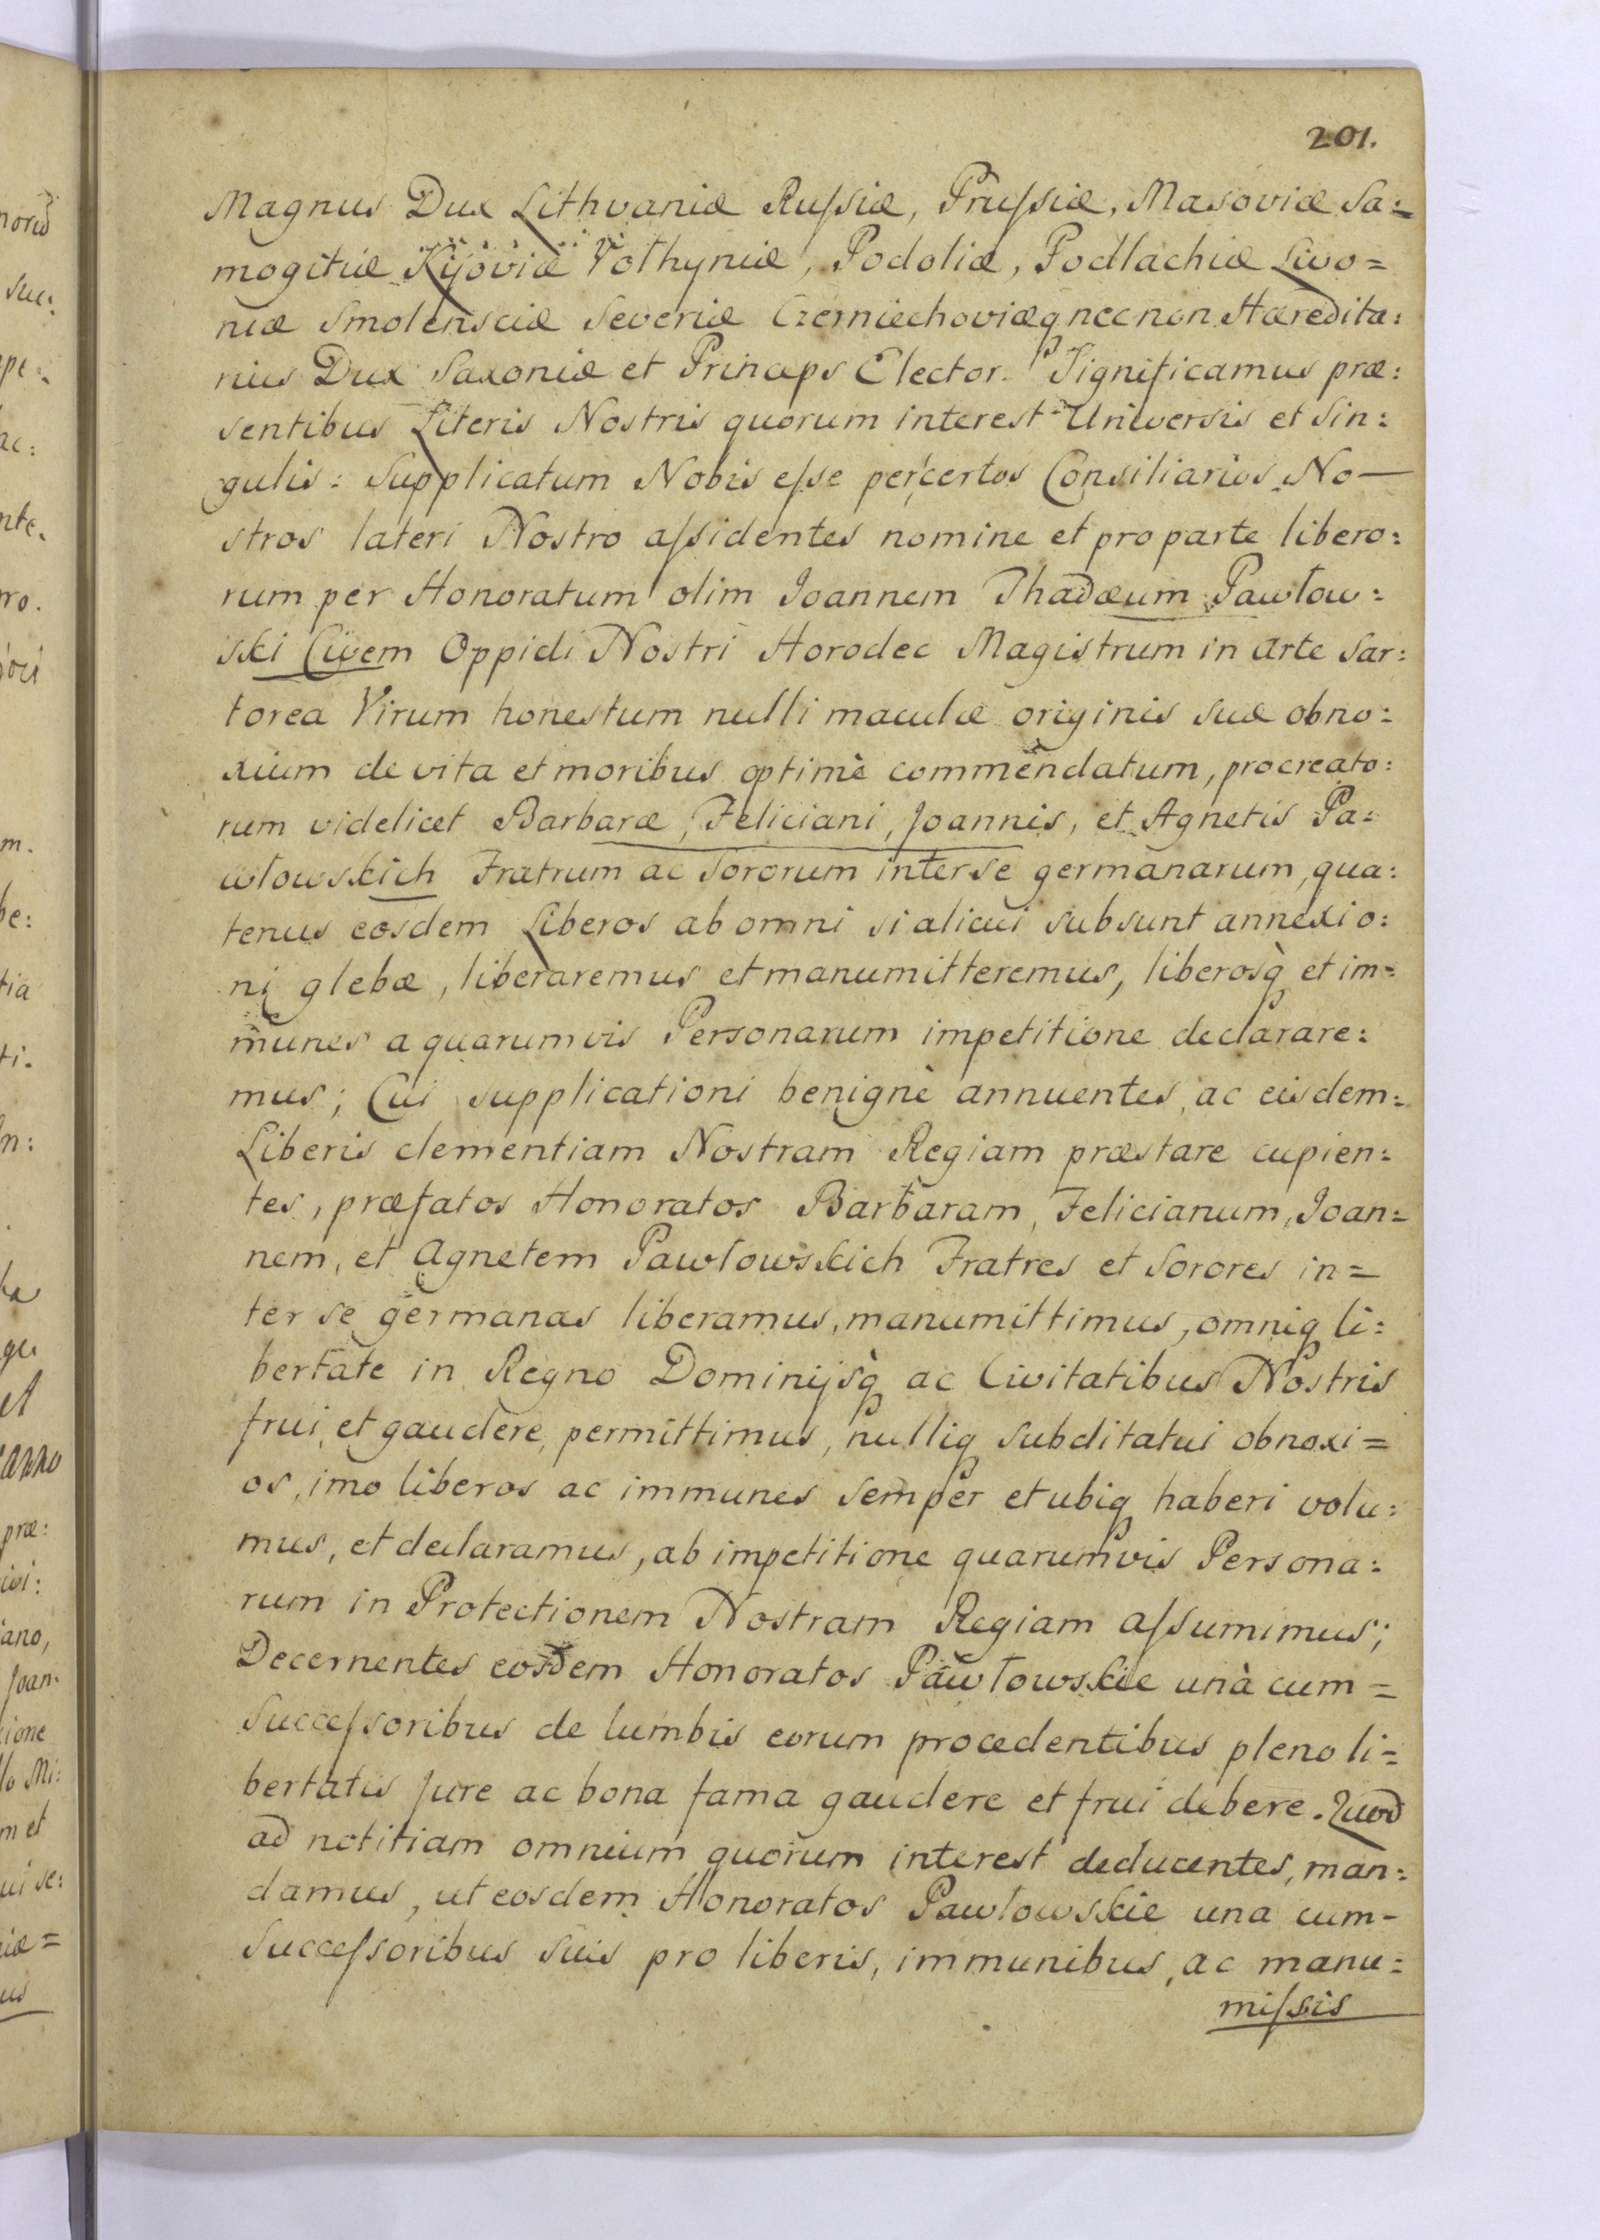 201.
Magnus Dux Lithvaniæ Russiæ, Prussiæ, Masoviæ Sa=
mogitiæ Kijoviæ Volhyniæ, Podoliæ, Podlachiæ Livo=
niæ Smolensciæ Severiæ Czerniechoviæq necnon Hæredita:
rius Dux Saxoniæ et Princeps Elector. Significamus præ:
sentibus Literis Nostris quorum interest Universis et Sin:
gulis: Supplicatum Nobis esse per certos Consiliarios No—
stros lateri Nostro assidentes nomine et pro parte libero:
rum per Honoratum olim Joannem Thadæum Pawłow:
ski Civem Oppidi Nostri Horodec Magistrum in Arte Sar:
torea Virum honestum nulli maculæ originis suæ obno:
xium de vita et moribus optimè commendatum, procreato:
rum videlicet Barbaræ, Feliciani, Joannis, et Agnetis Pa=
włowskich Fratrum ac Sororum inter se germanarum, qua:
tenus eosdem Liberos ab omni si alicui subsunt annexio:
ni glebæ, liberaremus et manumitteremus, liberosq̀ et im=
munes a quarumvis Personarum impetitione declarare:
mus; Cui supplicationi benignè annuentes, ac eisdem=
Liberis clementiam Nostram Regiam præstare cupien:
tes, præfatos Honoratos Barbaram, Felicianum, Joan=
nem, et Agnetem Pawłowskich Fratres et Sorores in=
ter se germanas liberamus, manumittimus, omniq li:
bertate in Regno Dominijsq̀ ac Civitatibus Nostris
frui et gaudere permittimus, nulliq subditatui obnoxi=
os, imo liberos ac immunes semper et ubiq haberi volu:
mus, et declaramus, ab impetitione quarumvis Persona:
rum in Protectionem Nostram Regiam assumimus;
Decernentes eosdem Honoratos Pawłowskie unà cum=
Successoribus de lumbis eorum procedentibus pleno li=
bertatis Jure ac bona fama gaudere et frui debere. Quod
ad notitiam omnium quorum interest deducentes, man:
damus, ut eosdem Honoratos Pawłowskie una cum-
Successoribus suis pro liberis, immunibus, ac manu=
missis